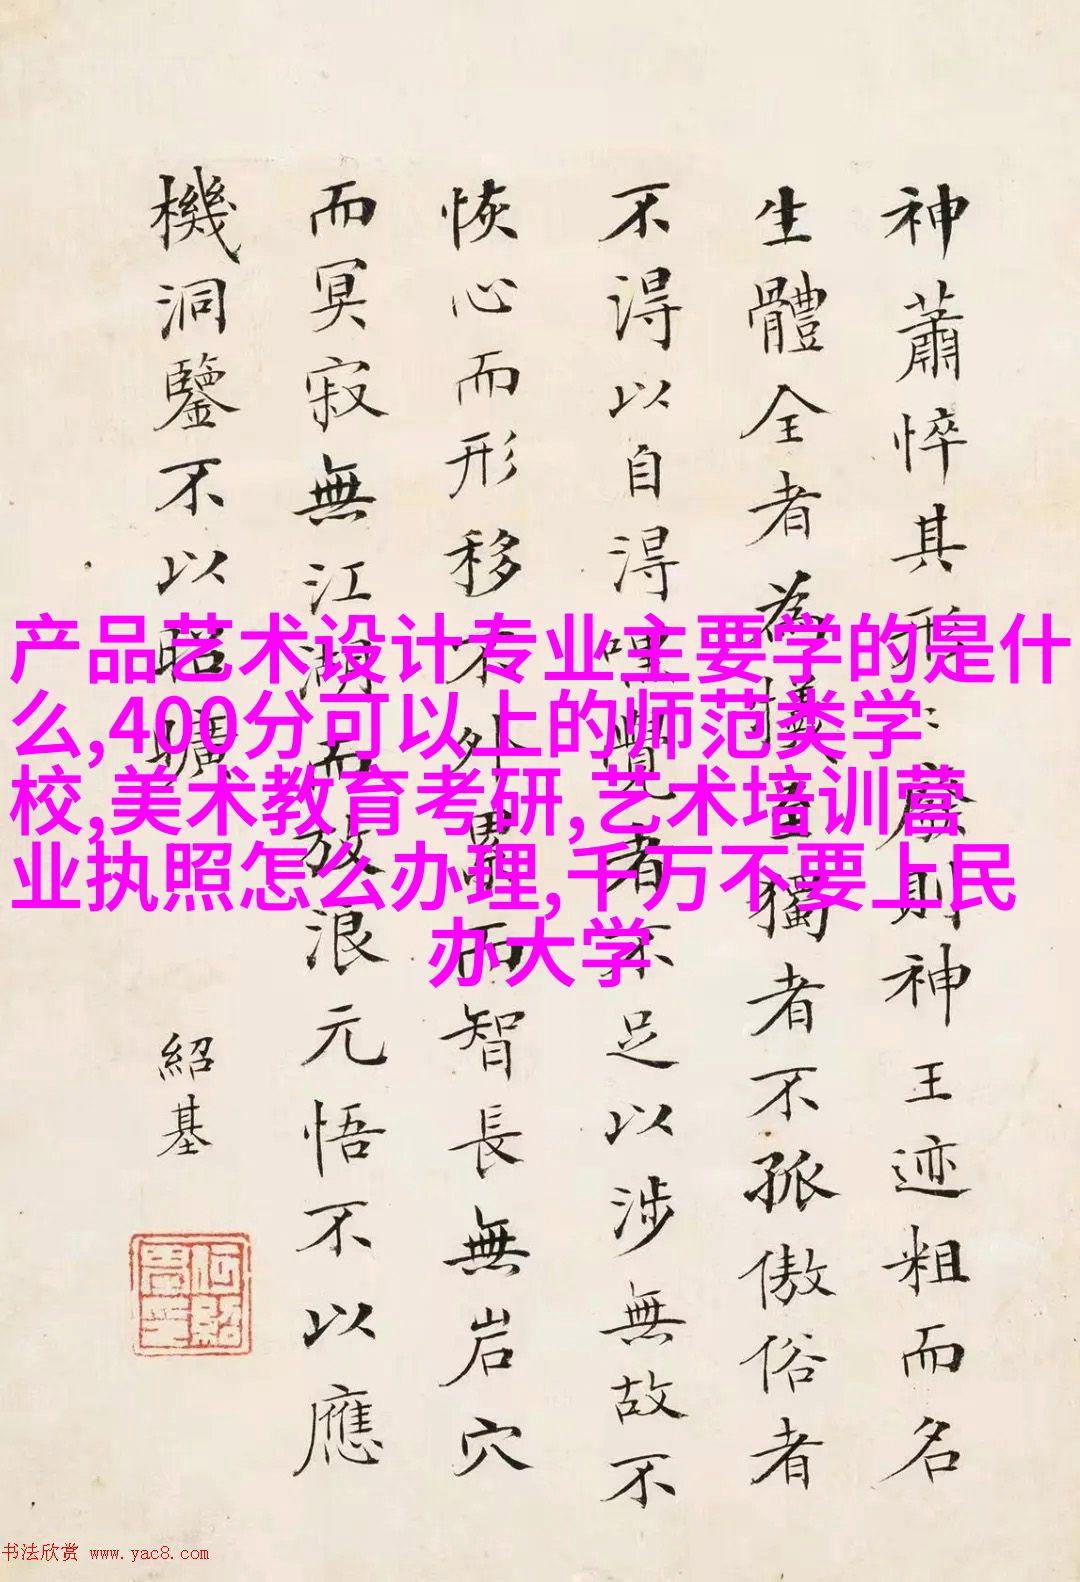 神蕭悴其形則神王迹粗而名
生體全者為犧至獨者不孤傲俗者
不得以自得覺者不足以涉無故不
恢心而形移不外累而智長無岩穴
而冥寂無江湖而放浪元悟不以應
機洞鑒不以昭曠
紹基
产品艺术设计专业主要学的是什
么,400分可以上的师范类学
校,美术教育考研,艺术培训营
业执照怎么办理,千万不要上民
办大学
书法欣赏 www.yac8.com